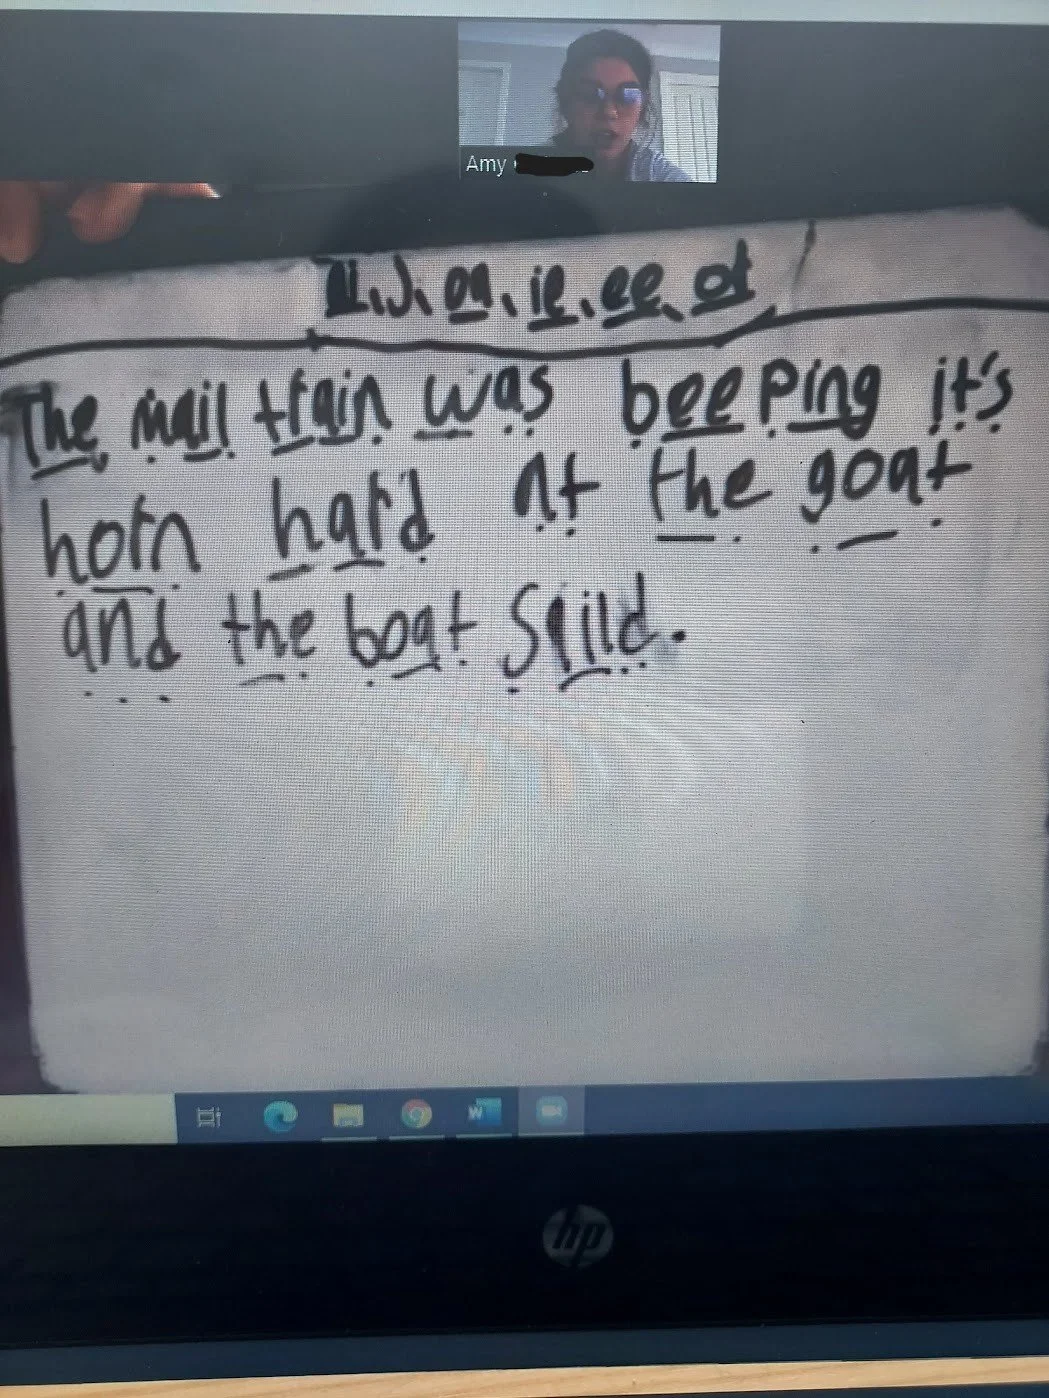 Amy
ai, j, oa, ie, ee, or
The mail train was beeping it's
horn hard at the goat
and the boat saild.
hp